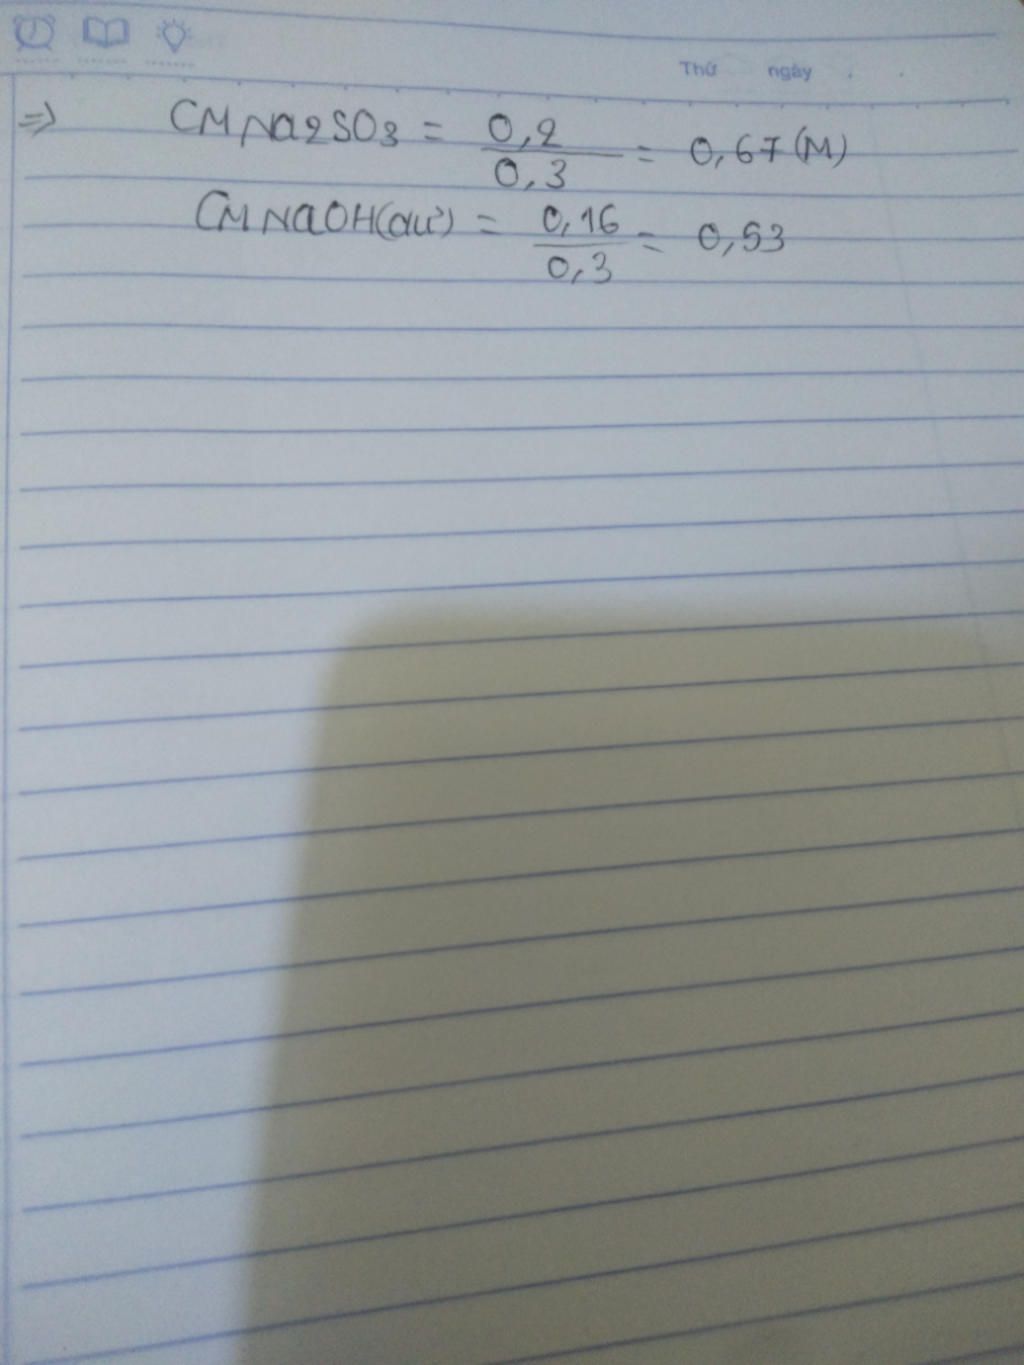 Thứ ngày . .
=> CM Na2SO3 = 0,2 / 0,3 = 0,67 (M)
CM NaOH(dư) = 0,16 / 0,3 = 0,53